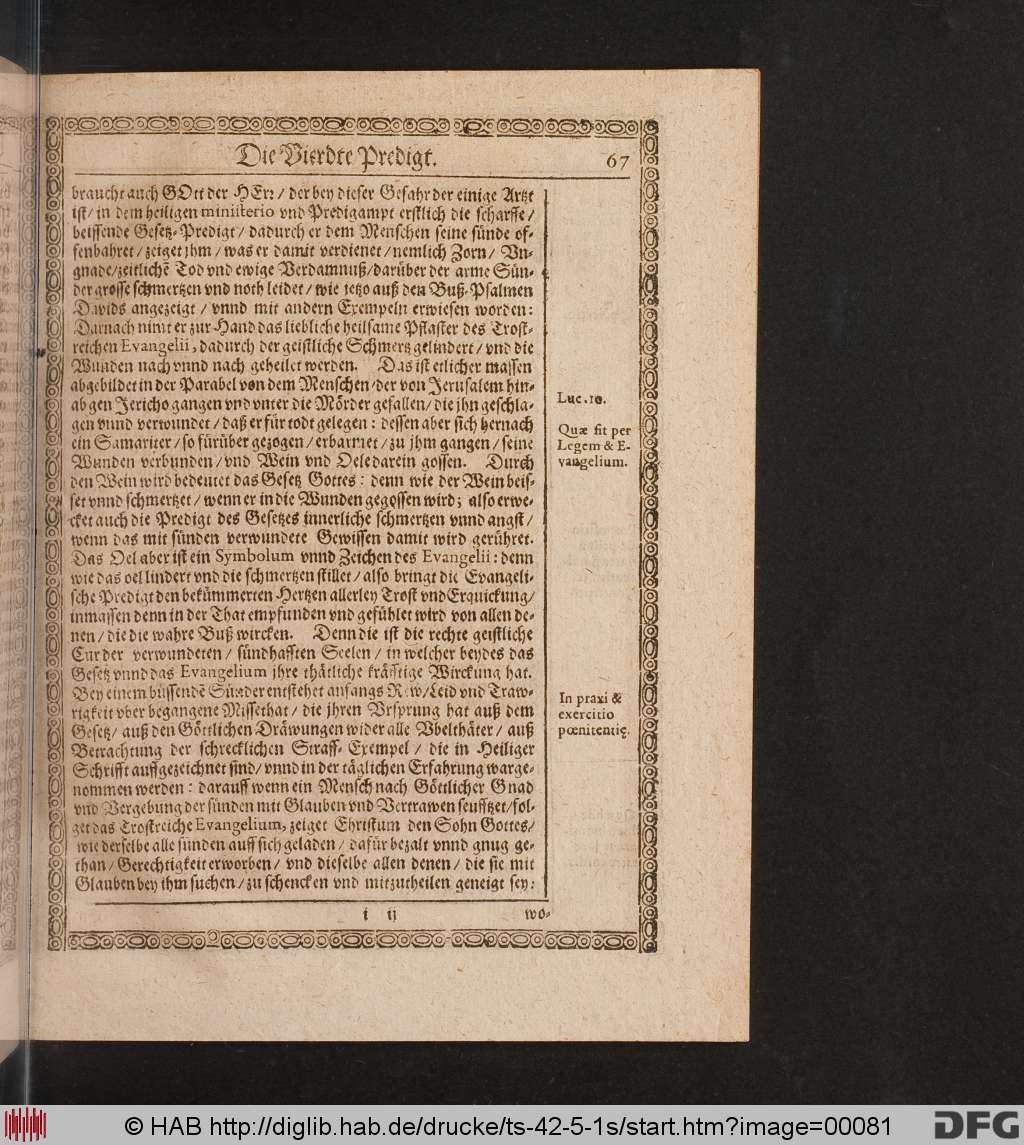 Die Vierdte Predigt.
67
braucht auch GOtt der HErr/ der bey dieser Gefahr der einige Artzt
ist/ in dem heiligen ministerio vnd Predigampt erstlich die scharffe/
beissende Gesetz-Predigt/ dadurch er dem Menschen seine sünde of-
fenbahret/ zeiget jhm/ was er damit verdienet/ nemlich Zorn/ Vn-
gnade/ zeitlichē Tod vnd ewige Verdamnuß/ darüber der arme Sün-
der grosse schmertzen vnd noth leidet/ wie jetzo auß den Buß-Psalmen
Davids angezeigt/ vnnd mit andern Exempeln erwiesen worden:
Darnach nimt er zur Hand das liebliche heilsame Pflaster des Trost-
reichen Evangelii, dadurch der geistliche Schmertz gelindert/ vnd die
Wunden nach vnnd nach geheilet werden. Das ist etlicher massen
abgebildet in der Parabel von dem Menschen/ der von Jerusalem hin-
ab gen Jericho gangen vnd vnter die Mörder gefallen/ die jhn geschla-
gen vnnd verwundet/ daß er für todt gelegen: dessen aber sich hernach
ein Samariter/ so fürüber gezogen/ erbarmet/ zu jhm gangen/ seine
Wunden verbunden/ vnd Wein vnd Oele darein gossen. Durch
den Wein wird bedeutet das Gesetz Gottes: denn wie der Wein beis-
set vnnd schmertzet/ wenn er in die Wunden gegossen wird; also erwe-
cket auch die Predigt des Gesetzes innerliche schmertzen vnnd angst/
wenn das mit sünden verwundete Gewissen damit wird gerühret.
Das Oel aber ist ein Symbolum vnnd Zeichen des Evangelii: denn
wie das oel lindert vnd die schmertzen stillet/ also bringt die Evangeli-
sche Predigt den bekümmerten Hertzen allerley Trost vnd Erquickung/
inmassen denn in der That empfunden vnd gefühlet wird von allen de-
nen/ die die wahre Buß wircken. Denn die ist die rechte geistliche
Cur der verwundeten/ sündhafften Seelen/ in welcher beydes das
Gesetz vnnd das Evangelium jhre thätliche kräfftige Wirckung hat.
Bey einem büssendē Sünder entstehet anfangs Rew/ Leid vnd Traw-
rigkeit vber begangene Missethat/ die jhren Vrsprung hat auß dem
Gesetz/ auß den Göttlichen Dräwungen wider alle Vbelthäter/ auß
Betrachtung der schrecklichen Straff-Exempel/ die in Heiliger
Schrifft auffgezeichnet sind/ vnnd in der täglichen Erfahrung warge-
nommen werden: darauff wenn ein Mensch nach Göttlicher Gnad
vnd Vergebung der sünden mit Glauben vnd Vertrawen seufftzet/ fol-
get das Trostreiche Evangelium, zeiget Christum den Sohn Gottes/
wie derselbe alle sünden auff sich geladen/ dafür bezalt vnnd gnug ge-
than/ Gerechtigkeit erworben/ vnd dieselbe allen denen/ die sie mit
Glauben bey ihm suchen/ zu schencken vnd mitzutheilen geneigt sey:
i ij
wo-
Luc. 10.
Quæ fit per
Legem & E-
vangelium.
In praxi &
exercitio
pœnitentię.
© HAB http://diglib.hab.de/drucke/ts-42-5-1s/start.htm?image=00081
DFG